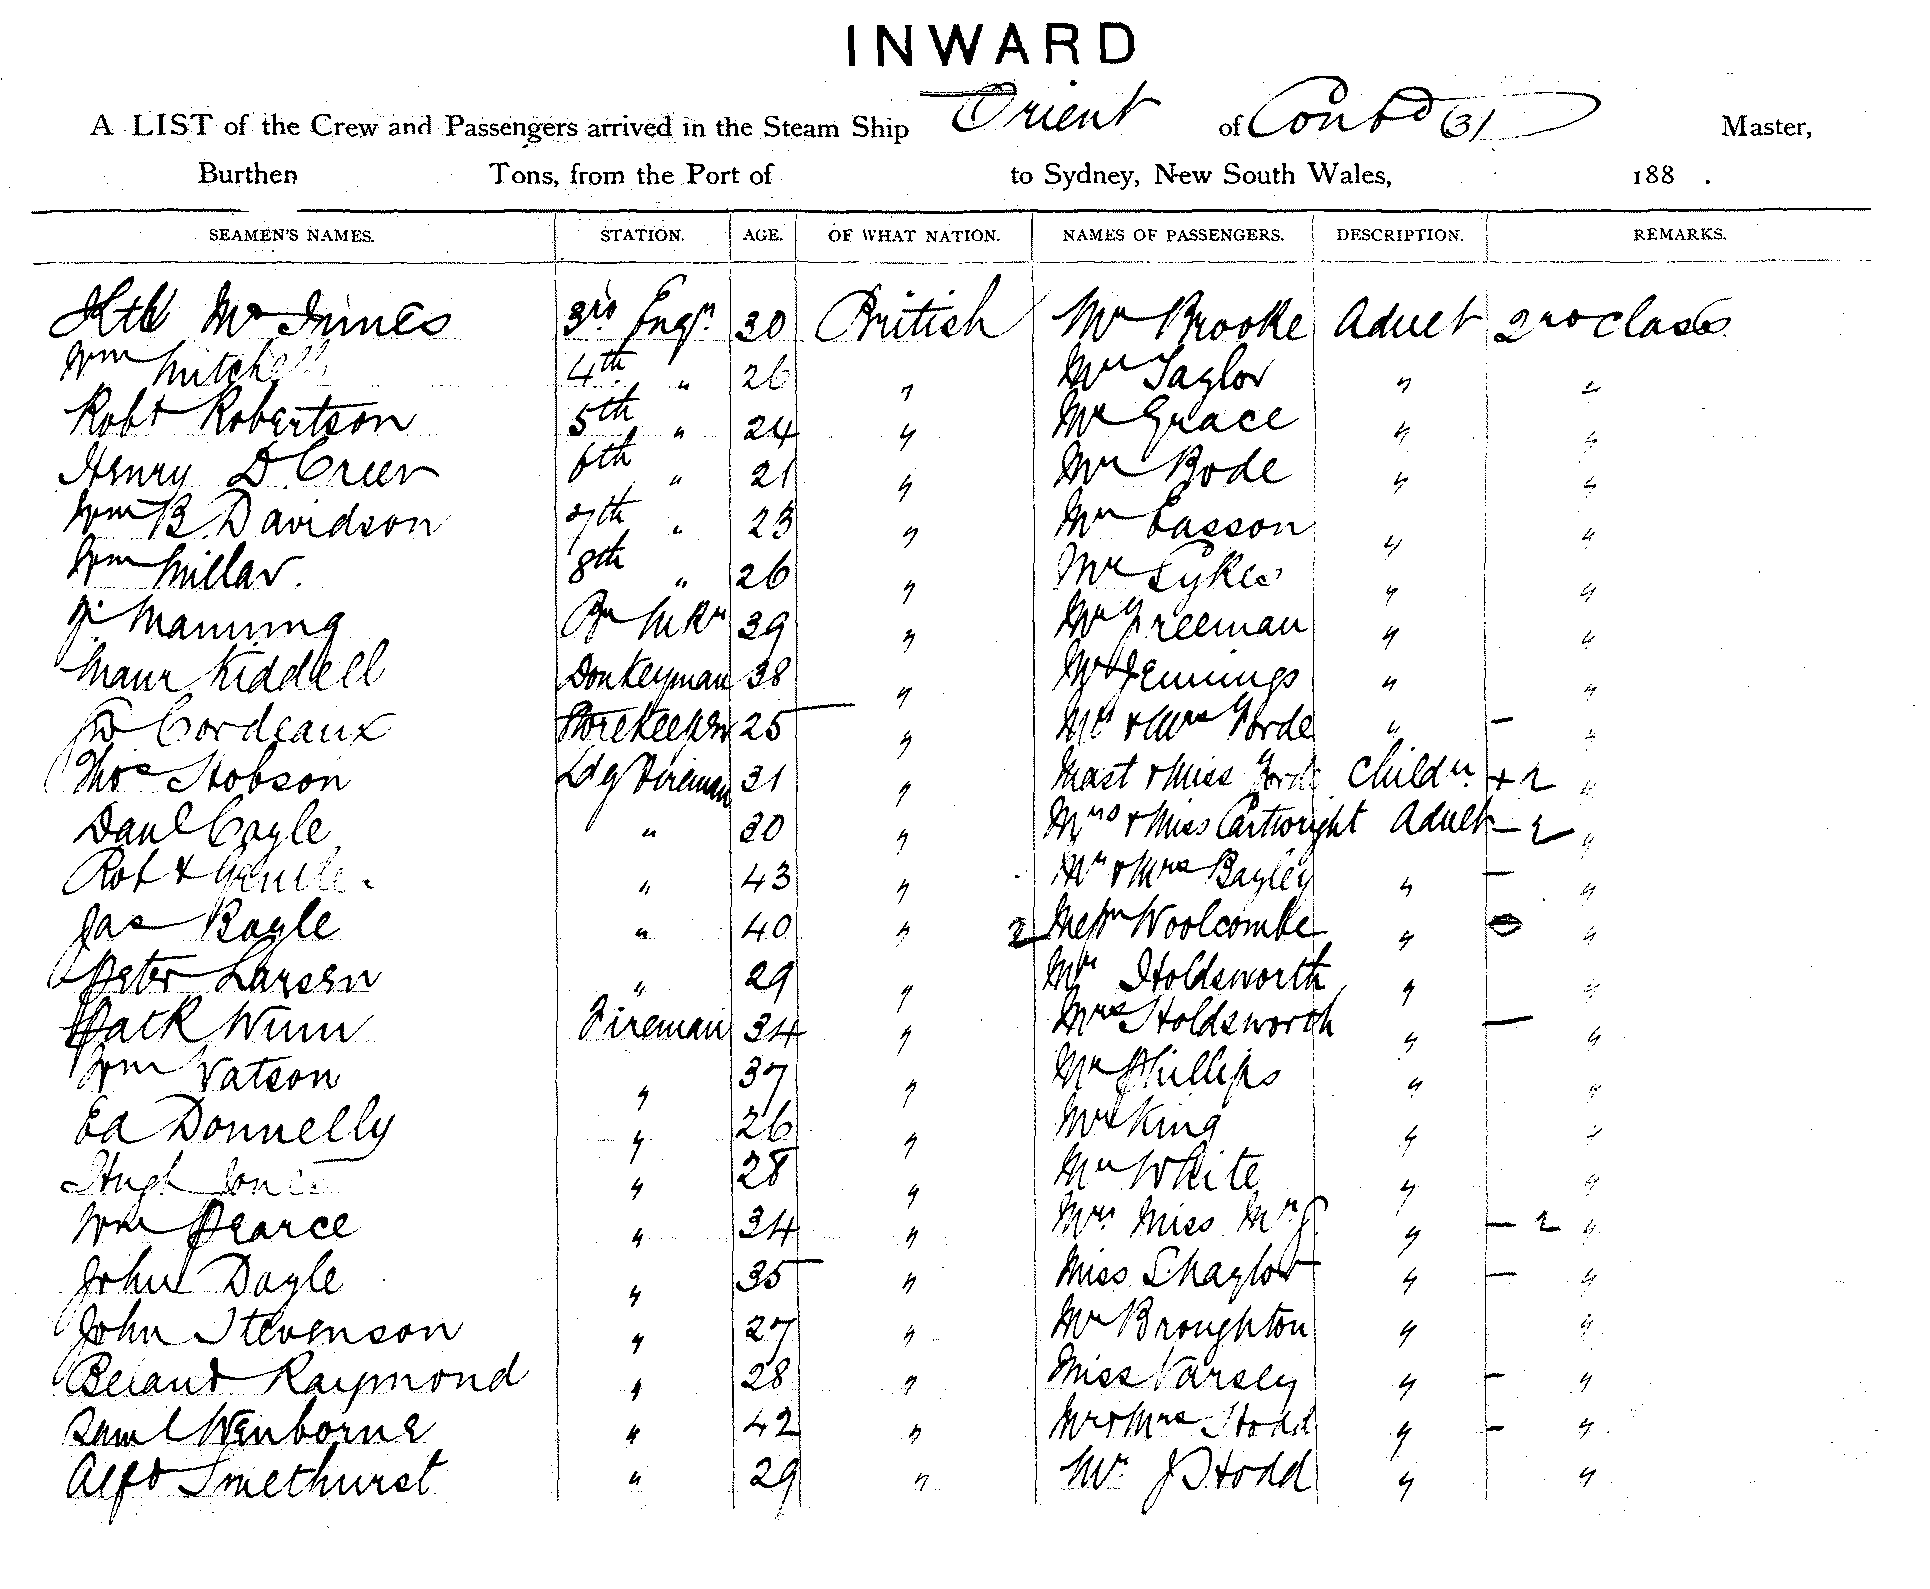 INWARD
A LIST of the Crew and Passengers arrived in the Steam Ship Orient of Contd (3) Master,
Burthen Tons, from the Port of to Sydney, New South Wales, 188 .
SEAMEN'S NAMES. STATION. AGE. OF WHAT NATION. NAMES OF PASSENGERS. DESCRIPTION. REMARKS.
McInnes 3rd Engr. 30 British Mr Brooke Adult 2nd Class
Wm Mitchell 4th " 26 " Mr Taylor " "
Robt Robertson 5th " 24 " Mr Grace " "
Henry D. Creer 6th " 21 " Mr Bode " "
Wm B. Davidson 7th " 23 " Mr Easson " "
Wm Millar. 8th " 26 " Mr Sykes " "
Manning 39 " Mr Freeman " "
Kiddell Donkeyman 38 " Jennings " "
Cordeaux Storekeeper 25 " Mr & Mrs Forde " — "
Thos Hobson Ldg Fireman 31 " Mast & Miss Forde Childn + 2 "
Danl Coyle " 30 " Mrs & Miss Cartwright Adult — 2 "
Robt Gentle. " 43 " Mr & Mrs Bayley " — "
Jas Boyle " 40 " 2 Messrs Woolcombe " "
Peter Larsen " 29 " Mr Holdsworth " "
Jack Winn Fireman 34 " Mrs Holdsworth " — "
Wm Watson " 37 " Mr Phillips " "
Ed Donnelly " 26 " King " "
Hugh Jones " 28 " Mr White " "
Wm Pearce " 34 " Miss " — 2 "
John Doyle " 35 " Miss Shaylor " — "
John Stevenson " 27 " Mr Broughton " "
Raymond " 28 " Miss Varsey " — "
Saml Wenborne " 42 " Mr & Mrs Stodd " — "
Alfd Smethurst " 29 " Mr. J Stodd " "